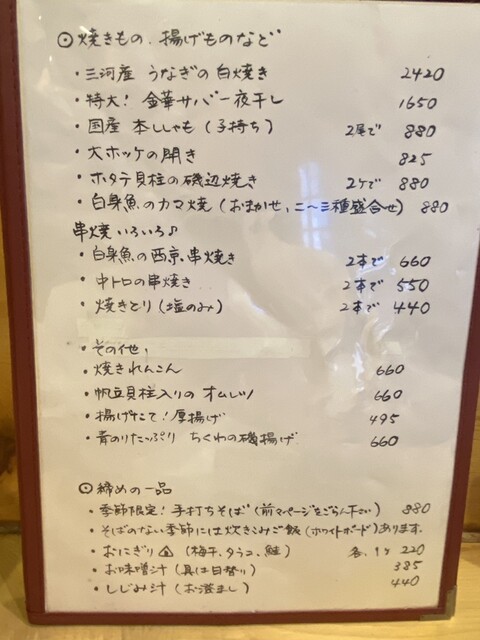 ⊙焼きもの、揚げものなど
・三河産 うなぎの白焼き 2420
・特大！ 金華サバ一夜干し 1650
・国産 本ししゃも（子持ち） 2尾で 880
・大ホッケの開き 825
・ホタテ貝柱の磯辺焼き 2ケで 880
・白身魚のカマ焼（おまかせ、二〜三種盛合せ） 880
串焼いろいろ♪
・白身魚の西京、串焼き 2本で 660
・中トロの串焼き 2本で 550
・焼きとり（塩のみ） 2本で 440
・その他、
・焼きれんこん 660
・帆立貝柱入りの オムレツ 660
・揚げたて！厚揚げ 495
・青のりたっぷり ちくわの磯揚げ 660
⊙締めの一品
・季節限定！手打ちそば（前ページをごらん下さい） 880
・そばのない季節には炊きこみご飯（ホワイトボード）あります。
・おにぎり（梅干、タラコ、鮭） 各、1ケ 220
・お味噌汁（具は日替り） 385
・しじみ汁（お澄まし） 440